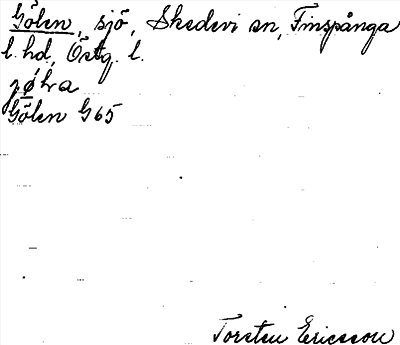 Gölen, sjö, Skedevi sn, Finspånga
l. hd, Östg. l.
Gölen G65
Torsten Ericsson